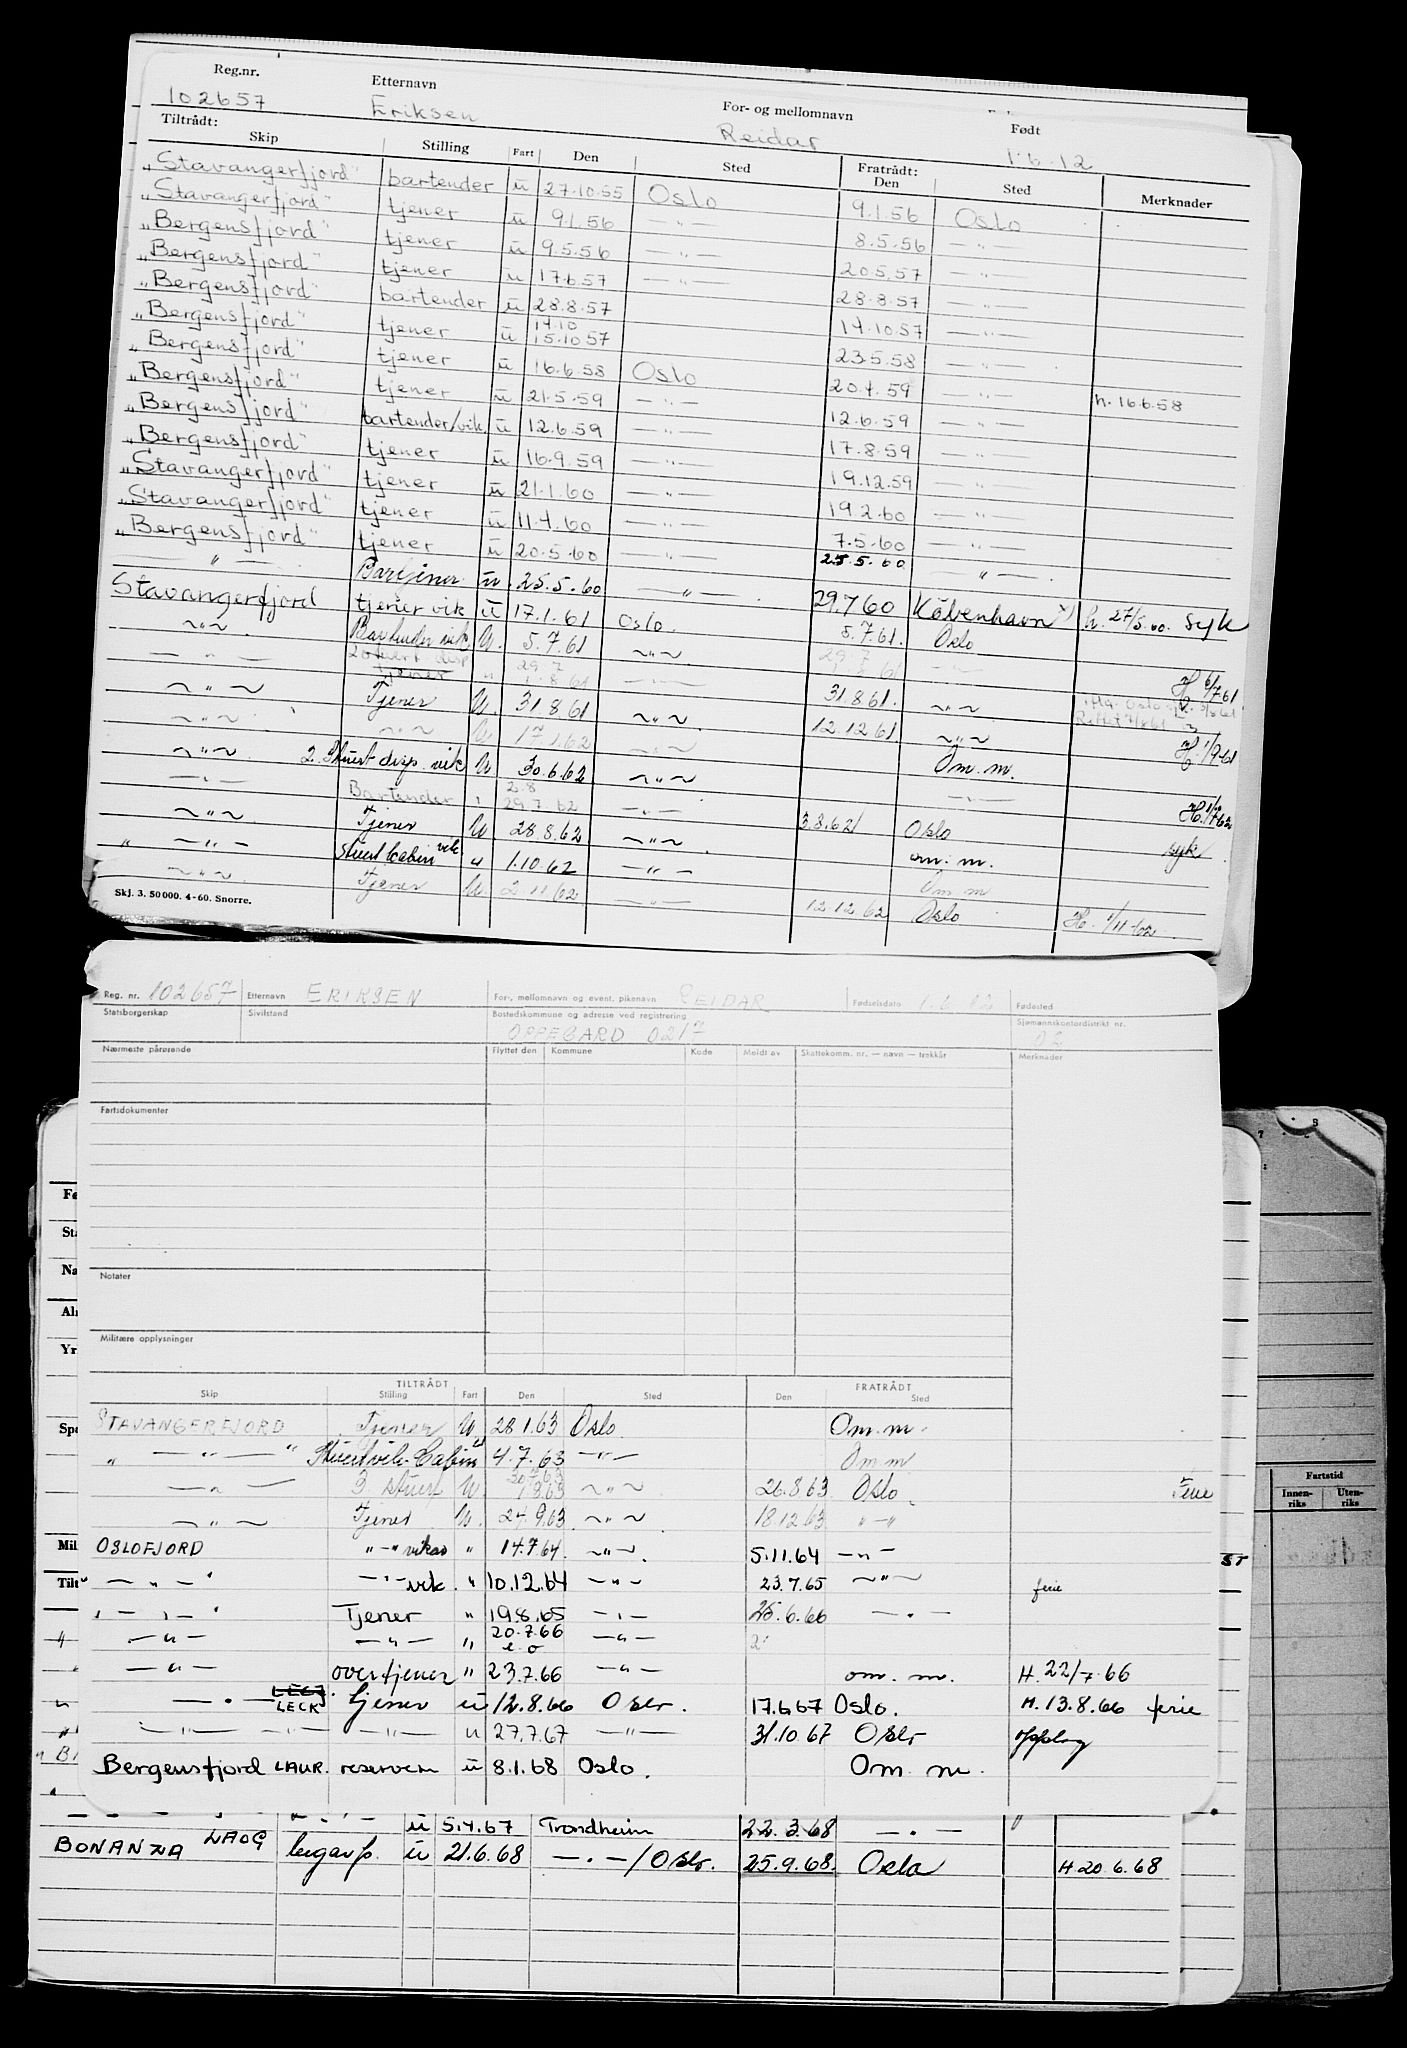 Reg.nr. Etternavn For- og mellomnavn Født
102657 Eriksen Reidar 1.6.12
Tiltrådt: Fratrådt:
Skip Stilling Fart Den Sted Den Sted Merknader
"Stavangerfjord" bartender u 27.10.55 Oslo 9.1.56 Oslo
"Stavangerfjord" tjener u 9.1.56 — " — 8.5.56 — " —
"Bergensfjord" tjener u 9.5.56 — " — 20.5.57 — " —
"Bergensfjord" tjener u 17.6.57 — " — 28.8.57 — " —
"Bergensfjord" bartender u 28.8.57 14.10.57 — " —
"Bergensfjord" tjener u 14.10 15.10.57 23.5.58 — " —
"Bergensfjord" tjener u 16.6.58 Oslo 20.4.59 — " — h. 16.6.58
"Bergensfjord" tjener u 21.5.59 — " — 12.6.59 — " —
"Bergensfjord" bartender/vik. u 12.6.59 — " — 17.8.59 — " —
"Bergensfjord" tjener u 16.9.59 — " — 19.12.59 — " —
"Stavangerfjord" tjener u 21.1.60 — " — 19.2.60 — " —
"Stavangerfjord" tjener u 11.4.60 — " — 7.5.60 — " —
"Bergensfjord" tjener u 20.5.60 — " — 25.5.60 — " —
— " — u. 25.5.60 — " — 29.7.60 København h. 27/5.60. syk
Stavangerfjord tjener vik u 17.1.61 Oslo. 5.7.61. Oslo
~ " ~ Bartender vik U. 5.7.61 ~ " ~ H 6/7.61
— " — tjener " 29.7 1.8.61 — " — 29.7 — " —
~ " ~ Tjener U. 31.8.61 ~ " ~ 31.8.61. ~ " ~
~ " ~ ~ " ~ U 17.1.62 ~ " ~ 12.12.61. ~ " ~ H. 1/9-61
~ " ~ 2. Stuert disp. vik U 30.6.62 ~ " ~ Om. m.
— " — Bartender " 2.8 29.7.62 — " — — " — H. 1/7-62
~ " ~ Tjener U 28.8.62 ~ " ~ 3.8.62 Oslo syk
" — " — Stuert Cabin vik u 1.10.62 — " — om. m.
~ " ~ Tjener U. 2.11.62 — " — Om. m
12.12.62 Oslo H. 1/11-62
Skj. 3. 50 000. 4-60. Snorre.
Reg. nr. 102657 Etternavn ERIKSEN For-, mellomnavn og event. pikenavn REIDAR Fødselsdato 1.6.12 Fødested
Statsborgerskap Sivilstand Bostedskommune og adresse ved registrering OPPEGÅRD 0217 Sjømannskontordistrikt nr. 02
Nærmeste pårørende Flyttet den Kommune Kode Meldt av Skattekomm. nr. — navn — trekkår Merknader
Fartsdokumenter
Notater
Militære opplysninger
TILTRÅDT FRATRÅDT
Skip Stilling Fart Den Sted Den Sted
STAVANGERFJORD Tjener U 28.1.63 Oslo. Om. m.
" — " — " Stuert vik. Cabin u 4.7.63 — " — Om m
— " — 3. stuert U 1.8.63 ~ " ~ 26.8.63 Oslo. Ferie
— " ~ Tjener U. 24.9.63 ~ " ~ 18.12.63 " — "
OSLOFJORD " — " vikar " 14.7.64. ~ " ~. 5.11.64 — " —
— " — " — " — vik. " 10.12.64 — " — 23.7.65 ~ " ~ ferie
" — " — " Tjener " 19.8.65 — " — 25.6.66 — " —
— " — — " — " 20.7.66 — " —
— " — overtjener " 23.7.66 — " — om. m. H. 22/7.66
— " — LECK tjener u 12.8.66 Oslo. 17.6.67 Oslo. H. 13.8.66 ferie
— " — — " — — " — u 27.7.67 — " — 31.10.67 Oslo opplag
Bergensfjord LAUR. u 8.1.68 Oslo. Om. m.
u 5.4.67 Trondheim 22.3.68 — " —
BONANZA LAOG u 21.6.68 — " — / Oslo. 25.9.68. Oslo H 20.6.68
Fartstid
Innen- riks Uten- riks
Mil
Tilt